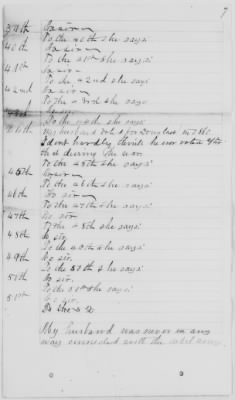 7
39th No sir
To the 40th she says:
40th No sir
To the 41st she says:
41st No sir
To the 42nd she says:
42nd No sir
To the 43rd she says:
No sir
To the 44th she says:
44th My husband voted for Douglass in 1860.
I dont hardly think he ever voted after
that during the war.
To the 45th she says:
45th No sir
To the 46th she says:
46th No sir
To the 47th she says:
47th No sir
To the 48th she says:
48th No sir.
To the 49th she says:
49th No sir
To the 50th she says:
50th No sir.
To the 51st she says:
51st No sir.
My husband was never in any
way connected with the rebel army